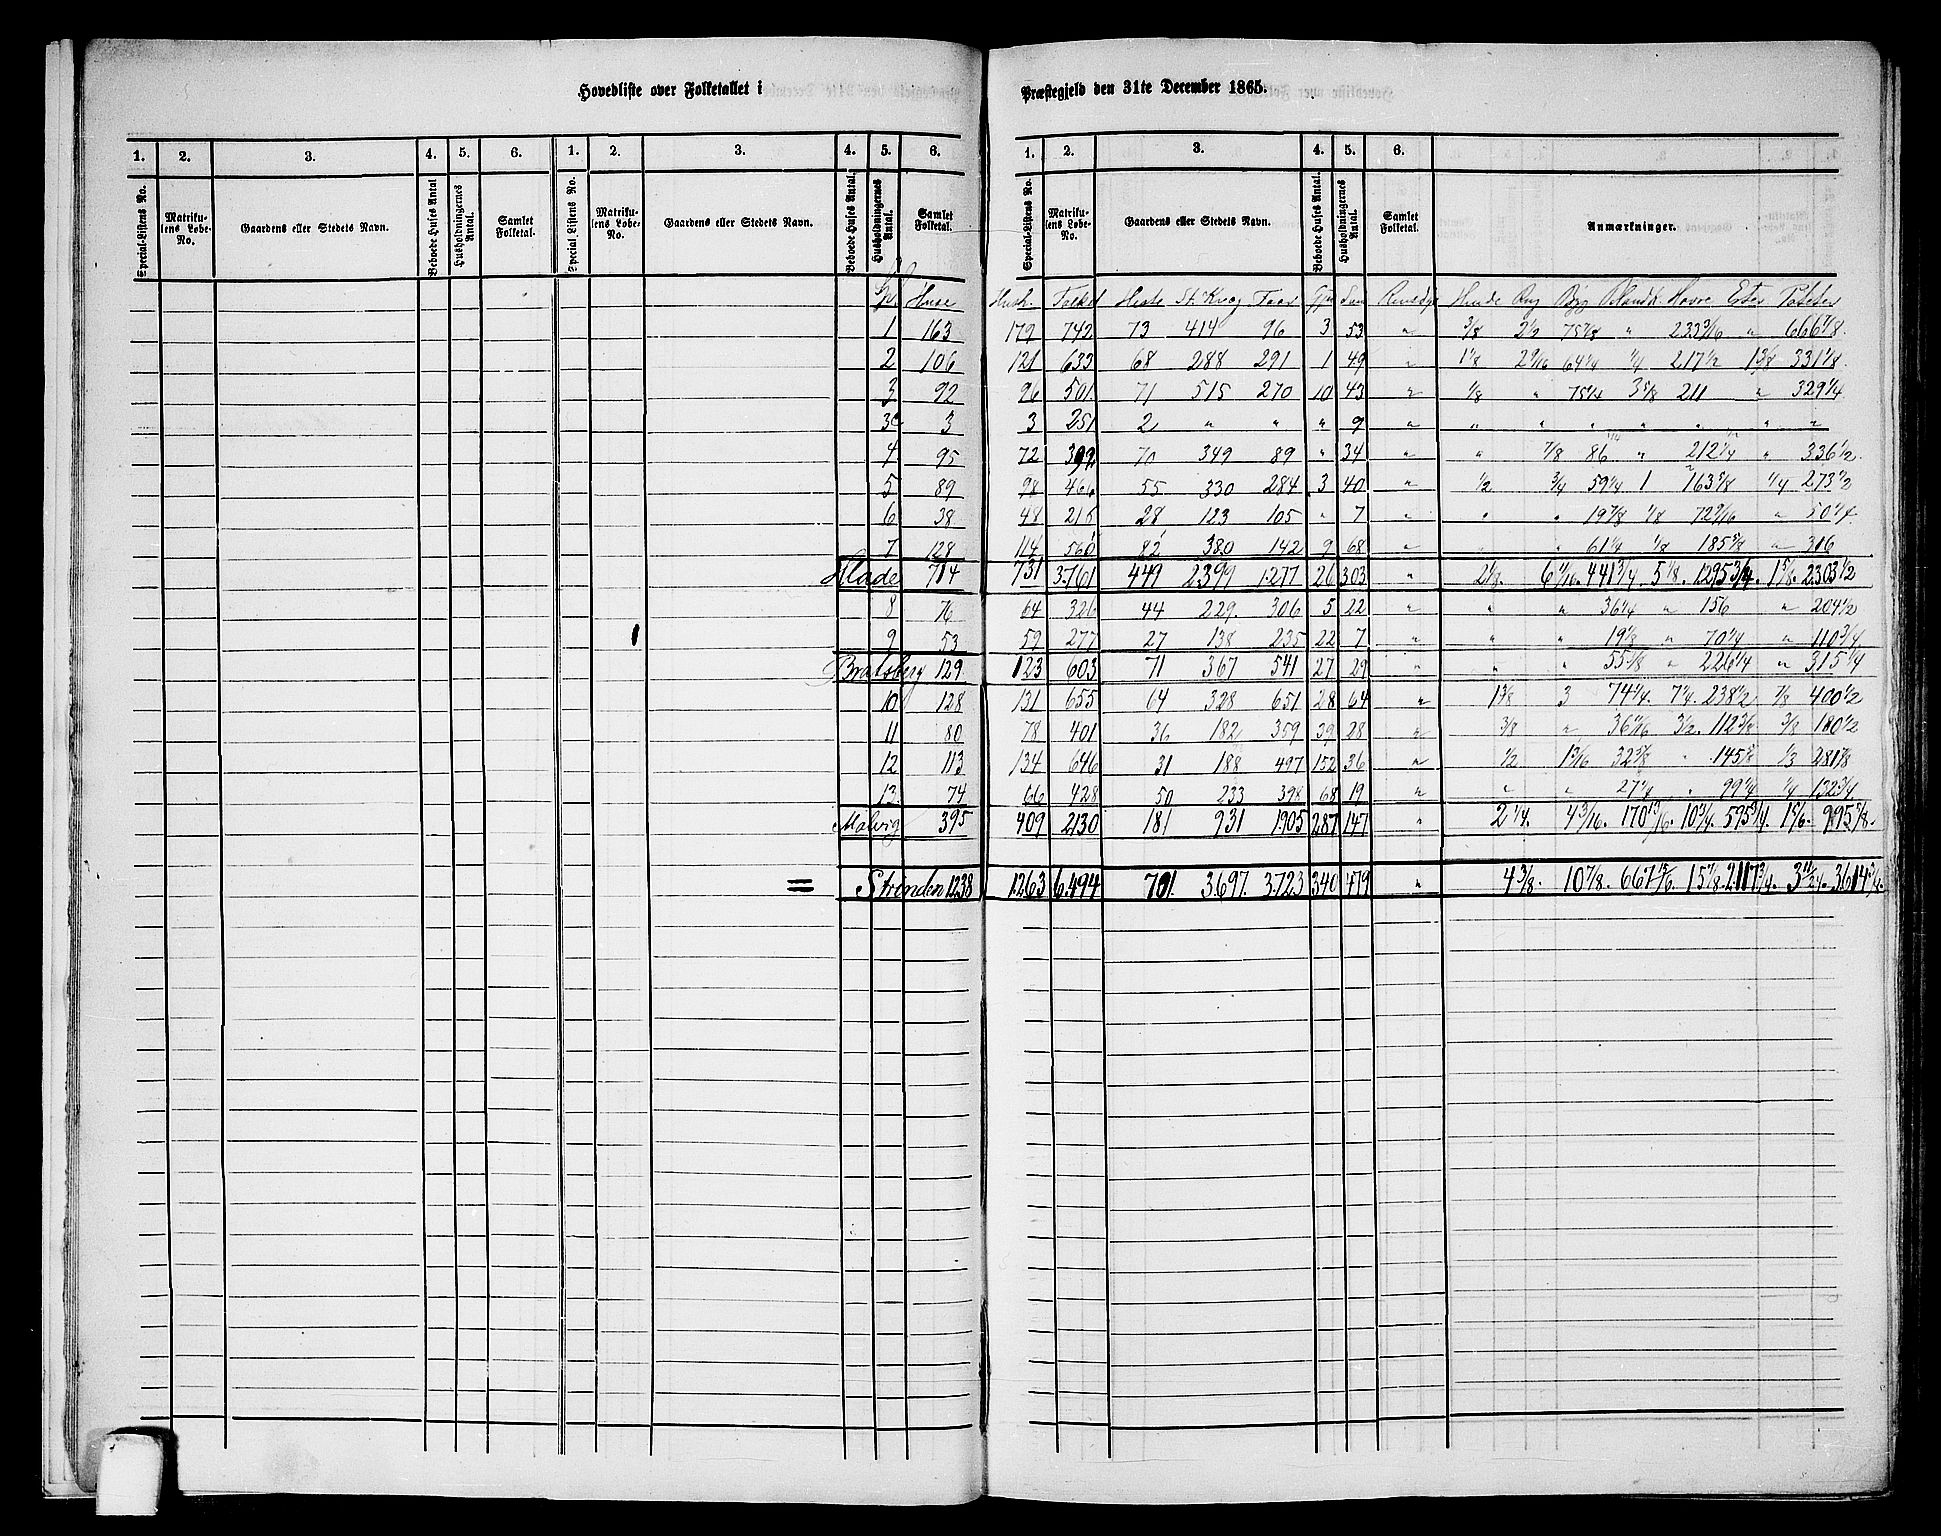 Hovedliste over Folketallet i Præstegjeld den 31te December 1865.
1. 2. 3. 4. 5. 6. 1. 2. 3. 4. 5. 6. 1. 2. 3. 4. 5. 6.
Special-Listens No. Matrikulens Løbe-No. Gaardens eller Stedets Navn. Beboede Huses Antal Husholdningernes Antal. Samlet Folketal. Special-Listens No. Matrikulens Løbe-No. Gaardens eller Stedets Navn. Beboede Huses Antal. Husholdningernes Antal. Samlet Folketal. Special-Listens No. Matrikulens Løbe-No. Gaardens eller Stedets Navn. Beboede Huses Antal. Husholdningernes Antal. Samlet Folketal. Anmærkninger.
Huse Hush. Folket Heste St. Kvæg Faar Sviin Rensdyr Hvede Rug Byg Blandk. Havre Erter Poteter
1 163 179 742 73 414 96 3 53 " 3/8 2 1/2 75 7/8 " 233 3/16 " 666 7/8
2 106 121 633 68 288 291 1 49 " 1 1/8 64 1/4 217 1/2 331 1/8
3 92 96 501 71 515 270 10 43 " 1/8 " 75 1/4 3 5/8 211 " 329 1/4
3 3 251 2 " " " 9 " " " " " " " "
4 95 72 399 70 349 89 " 34 " " 7/8 86 " 212 1/4 " 336 1/2
5 89 98 466 55 330 284 3 40 " 1/2 3/4 59 1/4 1 163 5/8 1/4 273 1/2
6 38 48 216 28 123 105 " 7 " " " 19 7/8 1/8 72 9/16 " 50 1/4
7 128 114 560 82 380 142 9 68 " " " 61 1/4 1/8 185 5/8 " 316
Hlade 714 731 3.761 449 2399 1277 26 303 " 2 1/8 6 441 3/4 5 7/8 1295 3/4 1 5/8 2303 1/2
8 76 64 326 44 229 306 5 22 " " " 36 1/4 " 156 " 204 1/2
9 53 59 277 27 138 235 22 7 " " " 19 1/8 " 70 1/4 " 110 3/4
Bratsberg 129 123 603 71 367 541 27 29 " " " 55 3/8 " 226 1/4 " 315 1/4
10 128 131 655 64 328 651 28 64 " 1 3/8 3 74 1/4 7 1/4 238 1/2 7/8 400 1/2
11 80 78 401 36 182 359 39 28 " 3/8 " 36 3 1/2 112 3/8 3/8 180 1/2
12 113 134 646 31 188 497 152 36 " 1/2 32 3/8 " 145 1/3 281 7/8
13 74 66 428 50 233 398 68 19 " " " 27 1/4 " 99 1/4 1/4 132 3/4
Malvig 395 409 2130 181 931 1905 287 147 " 2 1/4 4 3/16 170 10 3/4 595 3/4 995 5/8
= Strinden 1238 1263 6.494 701 3.697 3.723 340 479 " 4 3/8 10 7/8 667 15 7/8 2117 3/4 3 3614